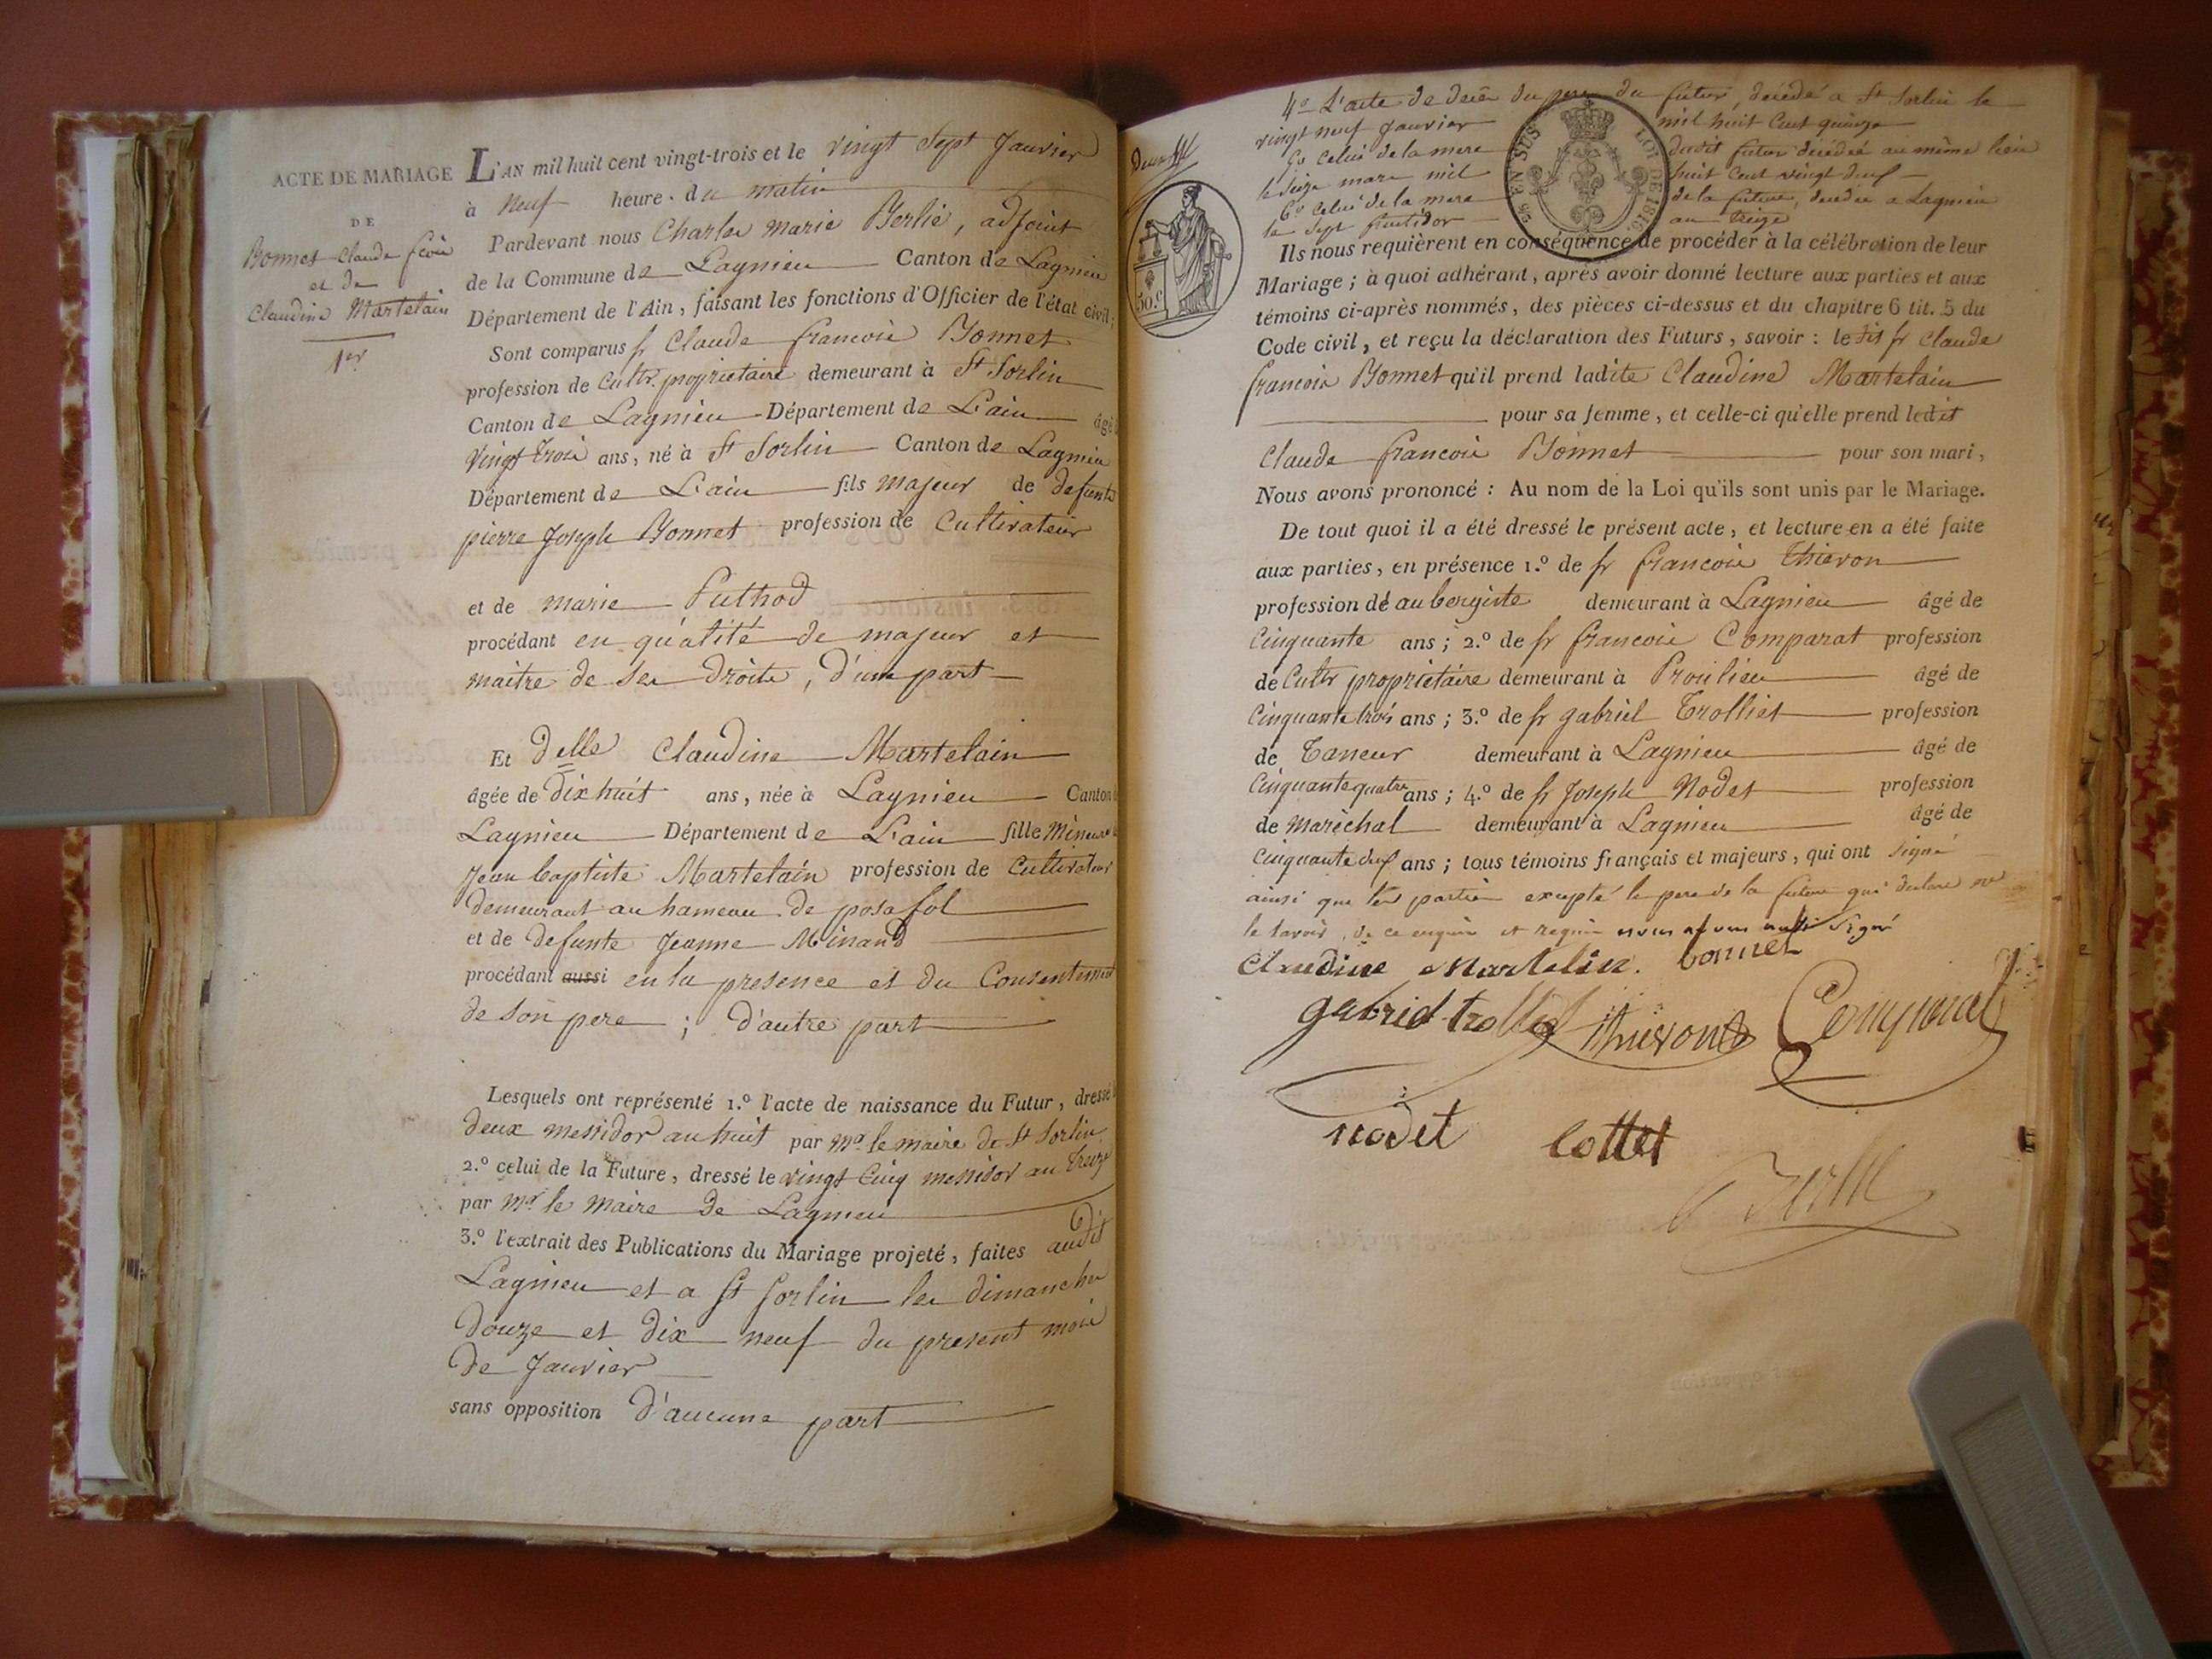 ACTE DE MARIAGE
DE
Bonnet Claude fcois
et de
Claudine Martelain
1er
L'AN mil huit cent vingt-trois et le vingt Sept Janvier
à Neuf heure. du matin
Pardevant nous Charles Marie Berlié, adjoint
de la Commune de Lagnieu Canton de Lagnieu
Département de l'Ain, faisant les fonctions d'Officier de l'état civil;
Sont comparus sr Claude francois Bonnet
profession de Cultr. proprietaire demeurant à St Sorlin
Canton de Lagnieu Département de L'ain âgé
Vingt trois ans, né à St Sorlin Canton de Lagnieu
Département de L'ain fils majeur de defunt
pierre Joseph Bonnet profession de Cultivateur
et de marie Puthod
procédant en qualité de majeur et
maitre de ses droits, d'une part
Et delle Claudine Martelain
âgée de dix huit ans, née à Lagnieu Canton
Lagnieu Département de L'ain fille Mineure
Jean baptiste Martelain profession de Cultivateur
demeurant au hameau de posafol
et de defunte Jeanne Minand
procédant aussi en la presence et du Consentement
de son pere ; d'autre part
Lesquels ont représenté 1.º l'acte de naissance du Futur, dressé
deux messidor an huit par Mr. le maire de St Sorlin
2.º celui de la Future, dressé le vingt Cinq messidor an treize
par Mr le Maire de Lagnieu
3.º l'extrait des Publications du Mariage projeté, faites audit
Lagnieu et a St Sorlin les dimanches
douze et dix neuf du present mois
de Janvier
sans opposition d'aucune part
4º L'acte de decès du pere du futur, décédé a St Sorlin le
vingt neuf Janvier mil huit Cent quinze
5º Celui de la mere dudit futur décédée au même lieu
le Seize mars mil huit Cent vingt deux
6º Celui de la mere de la future, decedée a Lagnieu
le Sept fructidor an treize
EN SUS LOI DE 1816
50.c
Ils nous requièrent en conséquence de procéder à la célébration de leur
Mariage; à quoi adhérant, après avoir donné lecture aux parties et aux
témoins ci-après nommés, des pièces ci-dessus et du chapitre 6 tit. 5 du
Code civil, et reçu la déclaration des Futurs, savoir: le dit sr Claude
francois Bonnet qu'il prend ladite Claudine Martelain
pour sa femme, et celle-ci qu'elle prend ledit
Claude francois Bonnet pour son mari,
Nous avons prononcé: Au nom de la Loi qu'ils sont unis par le Mariage.
De tout quoi il a été dressé le présent acte, et lecture en a été faite
aux parties, en présence 1.º de sr francois Thievon
profession de aubergiste demeurant à Lagnieu âgé de
Cinquante ans; 2.º de sr francois Comparat profession
de Cultr propriétaire demeurant à Proulieu âgé de
Cinquante trois ans; 3.º de sr gabriel Trolliet profession
de Tanneur demeurant à Lagnieu âgé de
Cinquante quatre ans; 4.º de sr Joseph Nodet profession
de Maréchal demeurant à Lagnieu âgé de
Cinquante deux ans; tous témoins français et majeurs, qui ont signé
ainsi que les parties excepté le pere de la future qui declare ne
le savoir, de ce enquis et requis nous avons aussi Signé
Claudine Martelin. bonnet
gabriel trolliet thievon Comparat
nodet cottet
Berlié